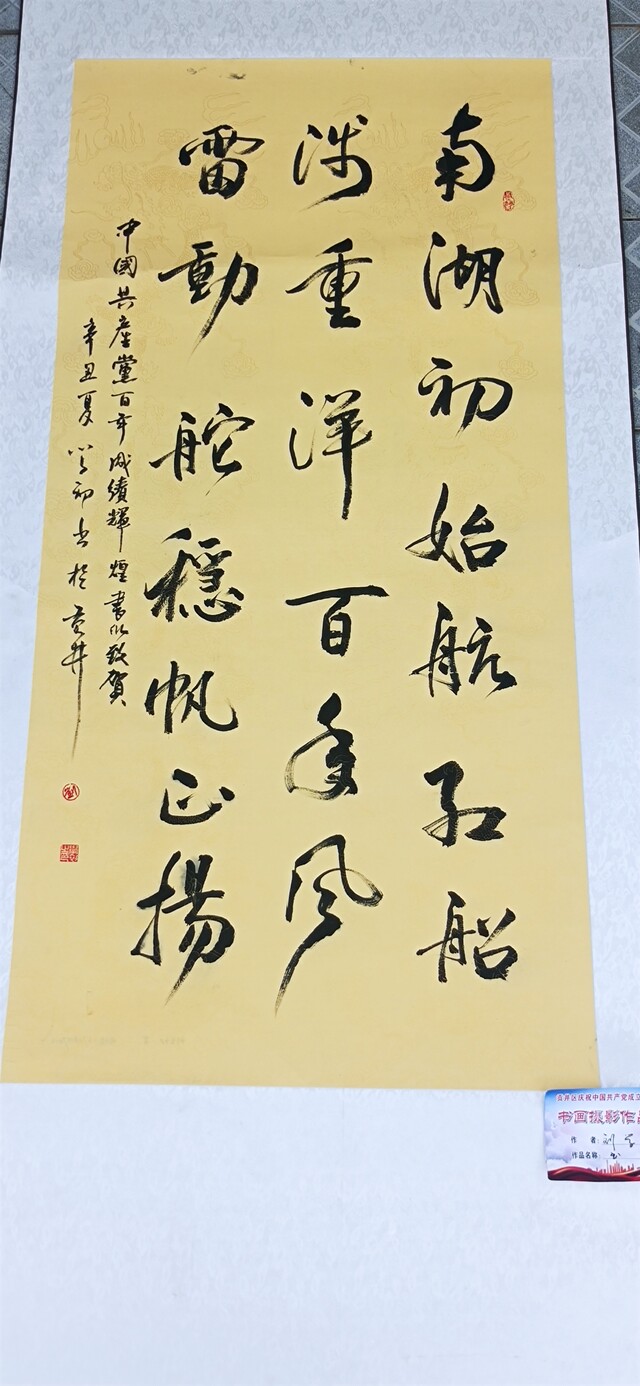 南湖初始航红船
涉重洋百年风
雷動舵穩帆正揚
中國共産黨百年成績輝煌書以致賀
辛丑夏 初书於 井
自井区庆祝中国共产党成立
书画摄影作品
作 者：刘
作品名称：书